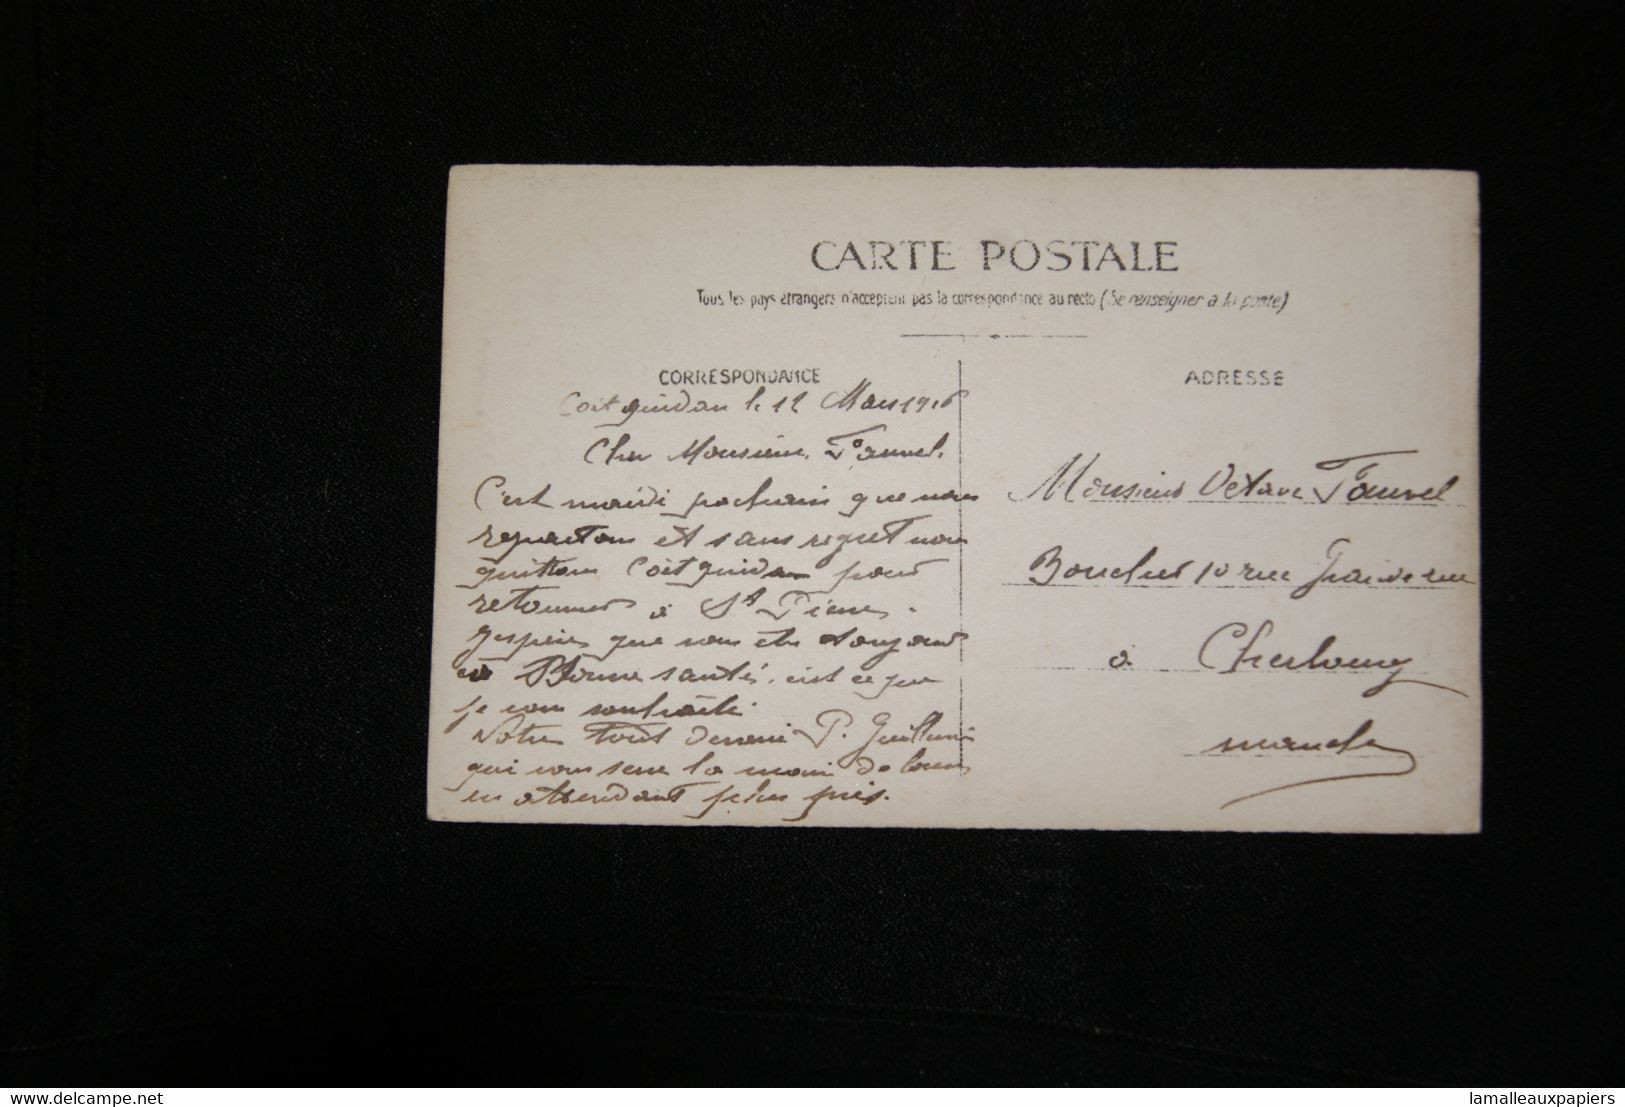 CARTE POSTALE
Tous les pays étrangers n'acceptent pas la correspondance au recto (Se renseigner à la poste)
CORRESPONDANCE
ADRESSE
Coëtquidan le 12 Mars 1916
Cher Monsieur Fauvel.
C'est mardi prochain que nous
repartons et sans regret nous
quittons Coëtquidan pour
retourner à St Pierre.
J'espère que vous êtes toujours
en Bonne santé. c'est ce que
je vous souhaite.
Votre tout devoué P. Guillemin
qui vous serre la main de loin
en attendant plus près.
Monsieur Octave Fauvel
Boucher 10 rue Grande rue
à Cherbourg
manche
www.delcampe.net
lamalleauxpapiers